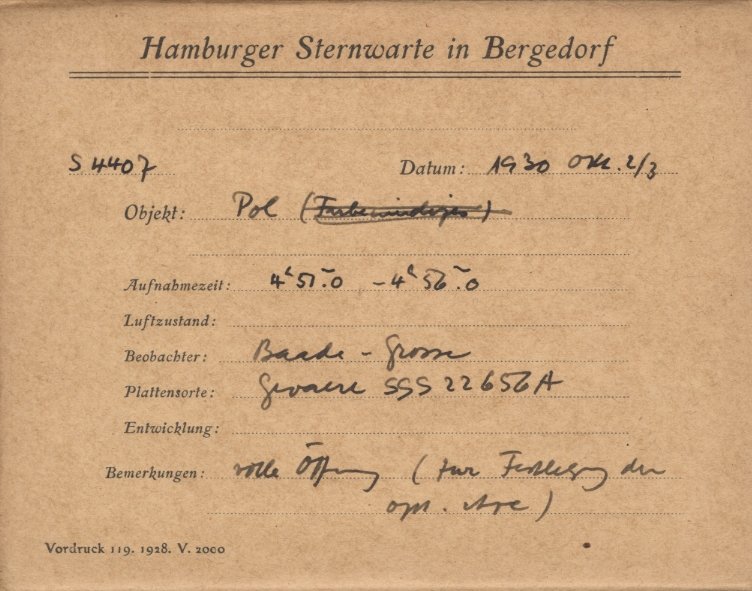 Hamburger Sternwarte in Bergedorf
S 4407 Datum: 1930 Okt. 2/3
Objekt: Pol (Farbenindizes)
Aufnahmezeit: 4h 51m.0 – 4h 56m.0
Luftzustand:
Beobachter: Baade – Grosse
Plattensorte: Gevaert SGS 22656A
Entwicklung:
Bemerkungen: volle Öffnung (zur Festlegung der
opt. Axe)
Vordruck 119. 1928. V. 2000